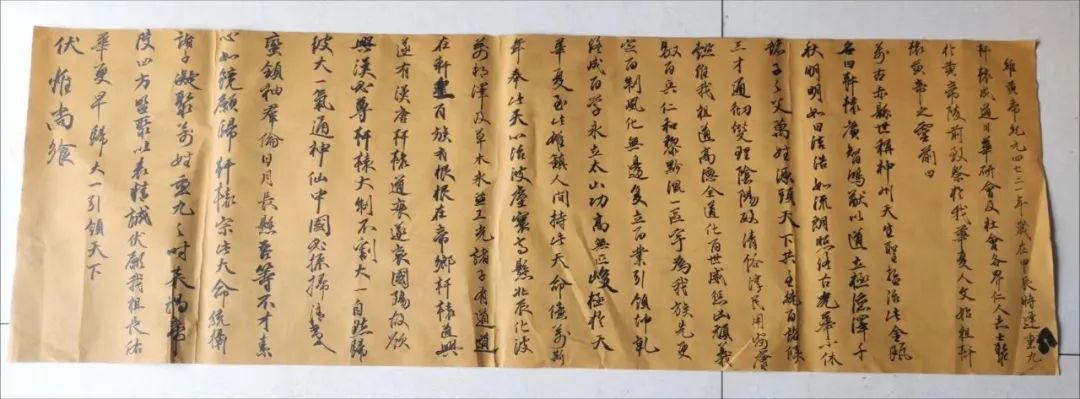 維黃帝紀元四七二一年歲在甲辰時運重九
軒轅成道日華研會及社會各界仁人志士聚
於黃帝陵前致祭於我華夏人文始祖軒
轅黃帝之靈前曰
萬古赤縣世稱神州天生聖祖治此金甌
名曰軒轅廣智鴻猷以道立極德澤千
秋明明如日浩浩如流朗照浩古光華永休
諸子之父萬姓源頭天下共主統百諸侯
三才通彻燮理陰陽政清俗淳民用安康
懿維我祖道高德全道化百世威照八荒義
馭百兵仁和黎黔混一區宇為我族先更
定百制風化無邊复立百業引領坤乾
經成百學永立太山功高無亞峻極於天
華夏至此雄鎮人間持此天命億萬斯
年奉此天以治波塵寰七懸北辰化波
萬邦澤及草木永蓝工光諸子有道道
在軒轅百族有根根在帝鄉軒轅道興
遂有漢唐軒轅道衰遂衰國陽故欲
興漢必尊軒轅大制不割大一自然歸
彼大一氣通神仙中國必振掃清
蛮鎮袖羣倫日月長懸吾等不才素
心如鏡願歸軒轅宗此天命統衛
諸子凝聚萬姓重九之時来揭帝
陵四方豎聚以表精誠伏願我祖長佑
華夏早歸大一引領天下
伏惟尚飨